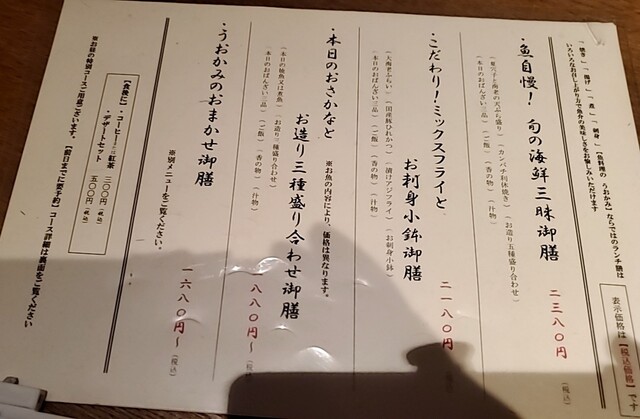 「焼き」、「揚げ」、「煮」、「刺身」、【魚料理の うおかみ】ならではのランチ膳は
いろいろなお召し上がり方で魚介の美味しさをお愉しみいただけます
表示価格は【税込価格】です
・魚自慢！ 旬の海鮮三昧御膳
二三八〇円（税込）
（カンパチ利休焼き）（お造り五種盛り合わせ）
（本日のおばんざい二品）（ご飯）（香の物）（汁物）
・こだわり！ミックスフライと
お刺身小鉢御膳
二一八〇円（税込）
（大海老ふらい）（国産豚ひれかつ）（漬けアジフライ）（お刺身小鉢）
（本日のおばんざい二品）（ご飯）（香の物）（汁物）
・本日のおさかなと
お造り三種盛り合わせ御膳
※お魚の内容により、価格は異なります。
八八〇円～
（本日の焼魚又は煮魚）（お造り三種盛り合わせ）
（本日のおばんざい二品）（ご飯）（香の物）（汁物）
・うおかみのおまかせ御膳
※別メニューをご覧ください。
一六八〇円～（税込）
【食後に】・コーヒーまたは紅茶 三〇〇円（税込）
・デザートセット 五〇〇円（税込）
※お昼の特別コースご用意ございます。【前日までに要予約】コース詳細は裏面をご覧ください